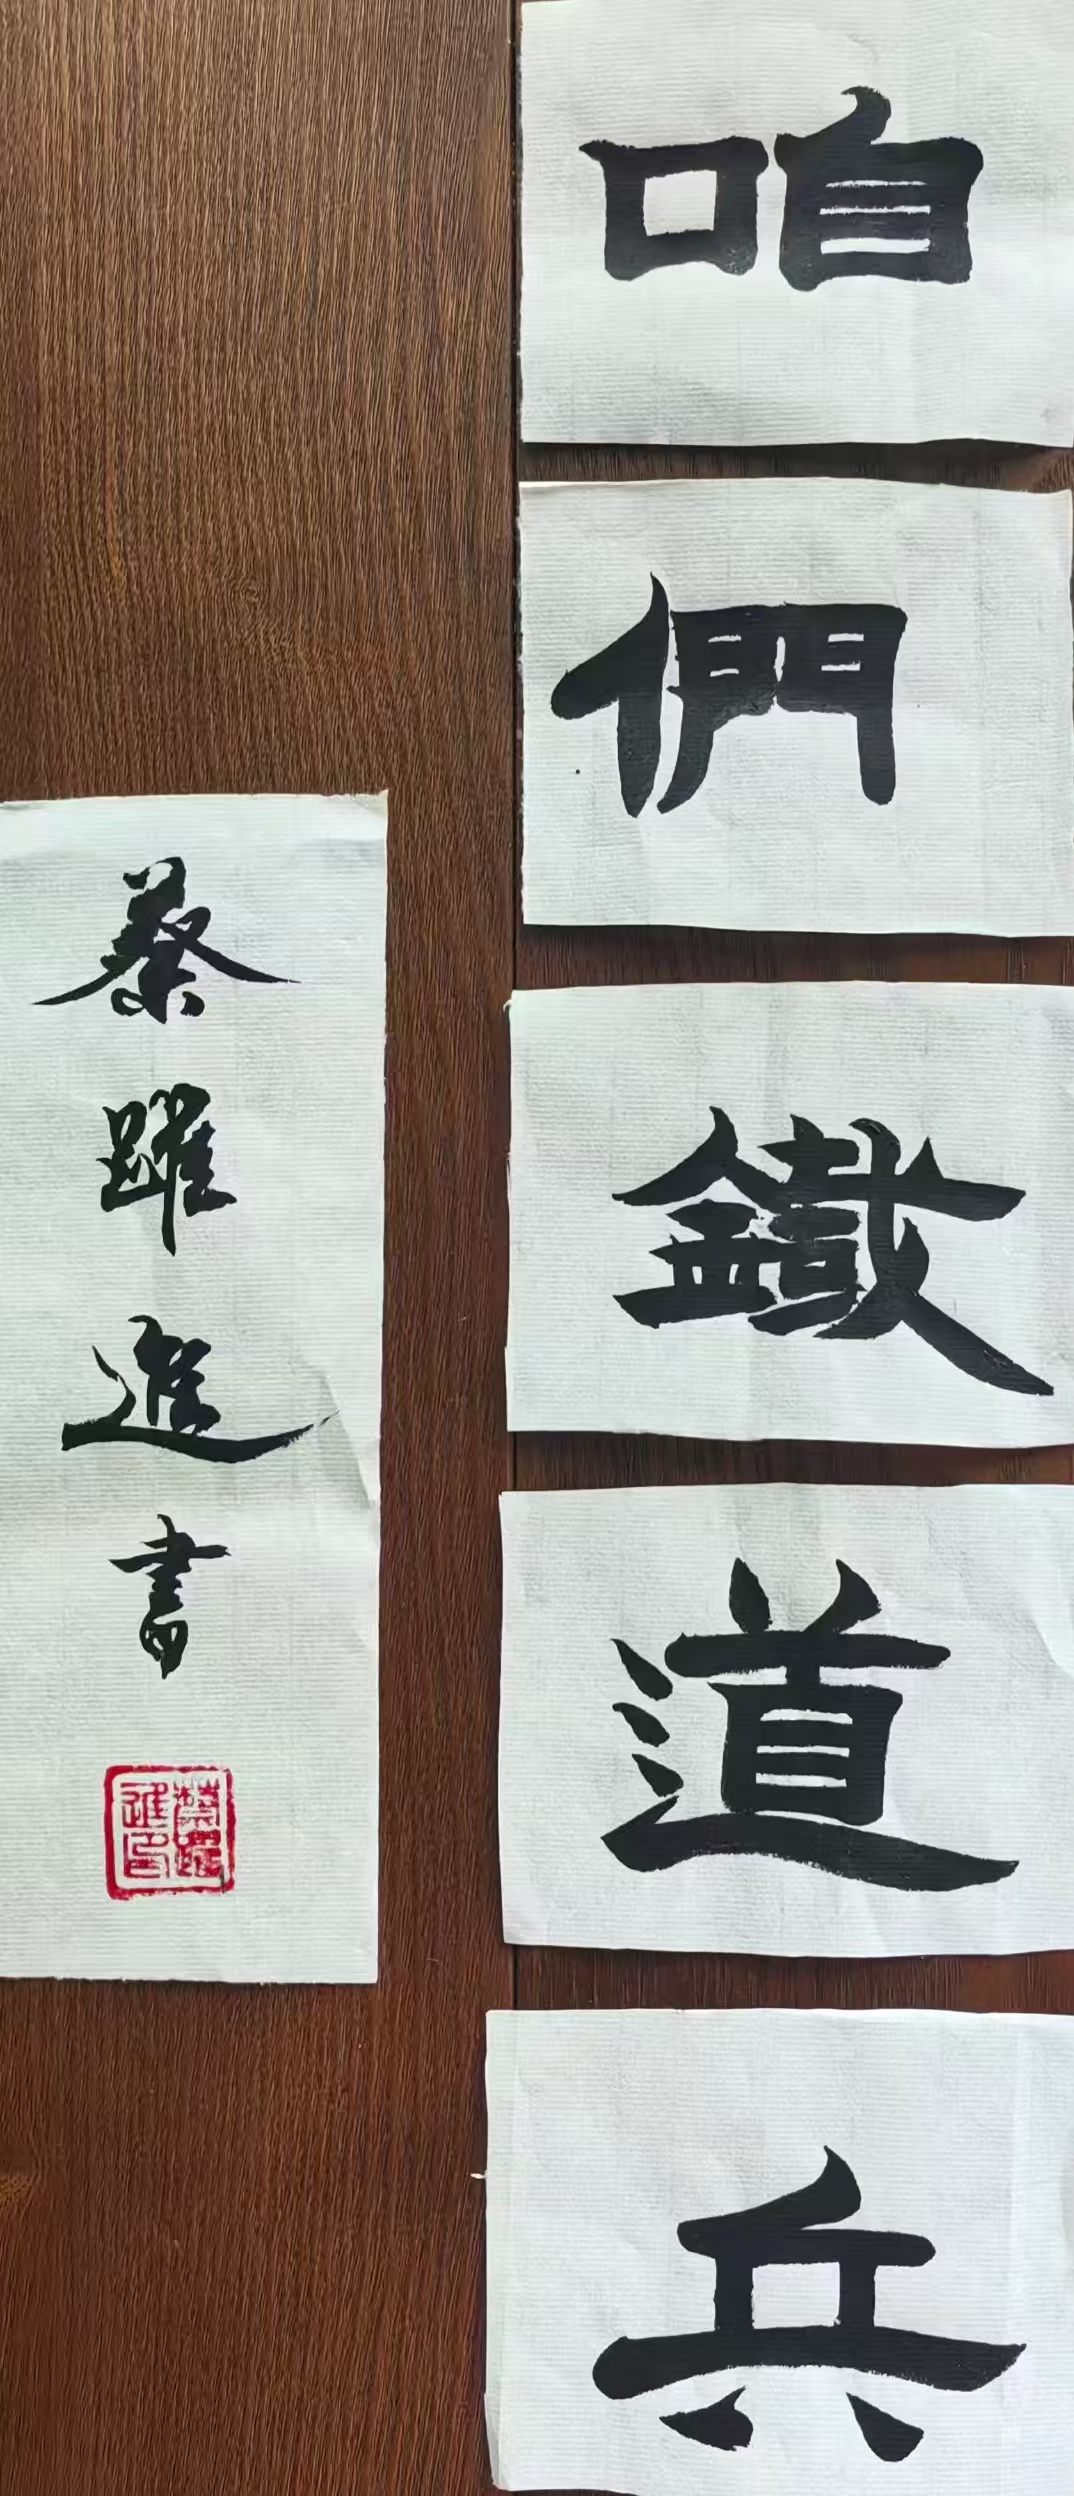 咱們鐵道兵
蔡躍進書